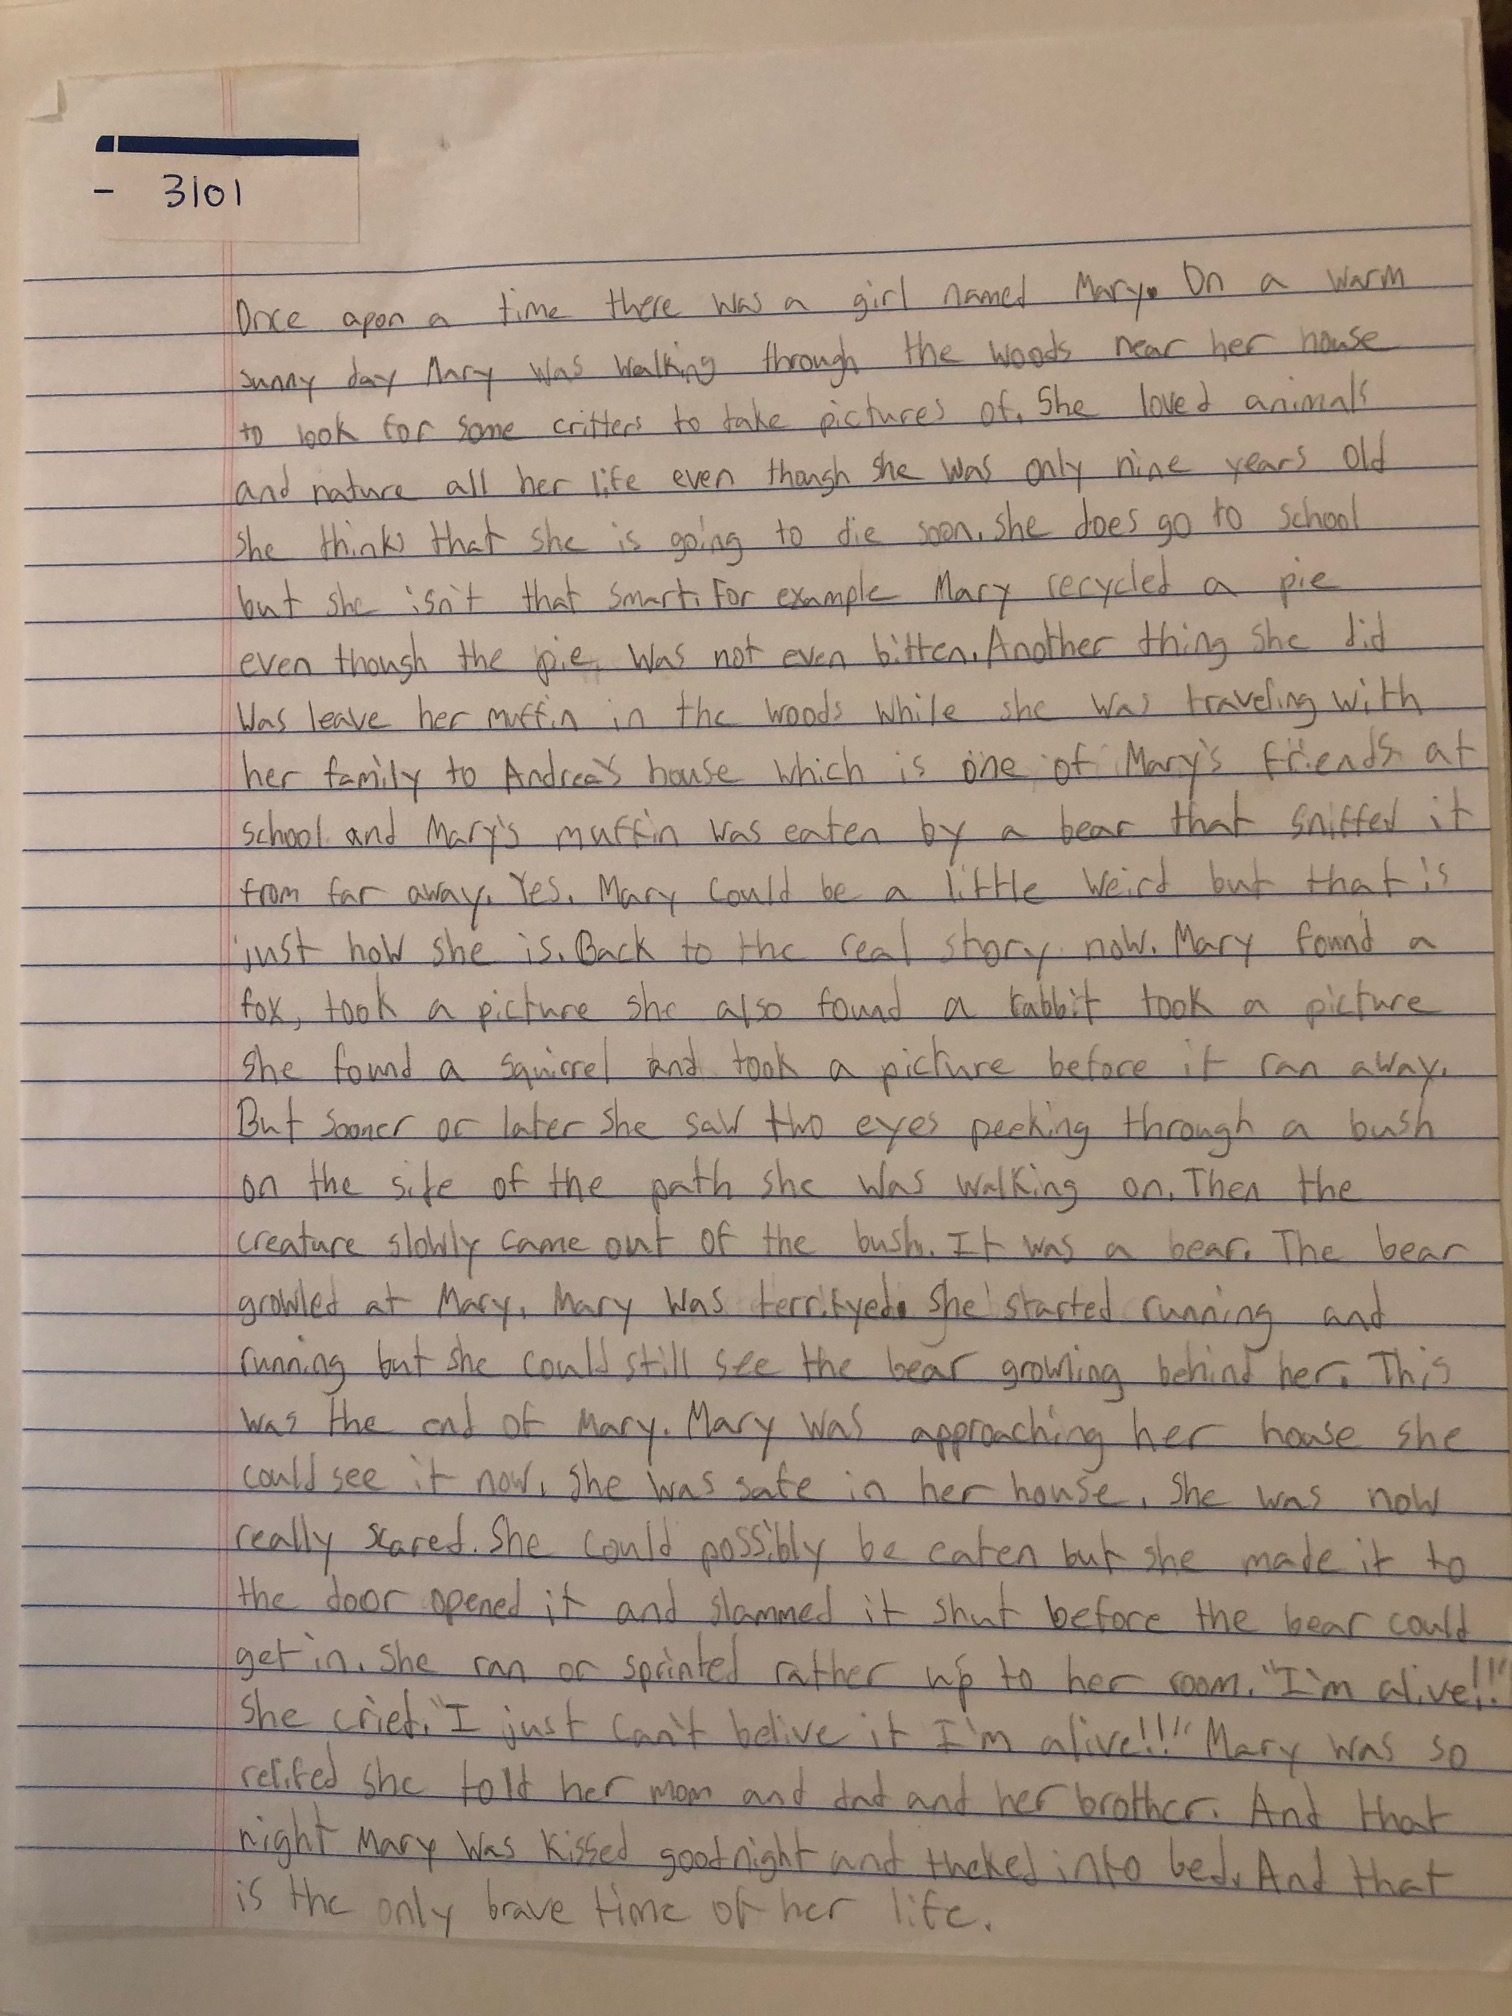 - 3101
Once apon a time there was a girl named Mary. On a warm
sunny day Mary was walking through the woods near her house
to look for some critters to take pictures of. She loved animals
and nature all her life even though she was only nine years old
she thinks that she is going to die soon. she does go to school
but she isn't that smart. For example Mary recycled a pie
even though the pie was not even bitten. Another thing she did
was leave her muffin in the woods while she was traveling with
her family to Andrea's house which is one of Mary's friends at
school and Mary's muffin was eaten by a bear that sniffed it
from far away. Yes. Mary could be a little weird but that is
just how she is. Back to the real story now. Mary found a
fox, took a picture she also found a rabbit took a picture
she found a squirrel and took a picture before it ran away.
But sooner or later she saw two eyes peeking through a bush
on the side of the path she was walking on. Then the
creature slowly came out of the bush. It was a bear. The bear
growled at Mary. Mary was terrifyed. She started running and
running but she could still see the bear growling behind her. This
was the end of Mary. Mary was approaching her house she
could see it now. She was safe in her house. She was now
really scared. She could possibly be eaten but she made it to
the door opened it and slammed it shut before the bear could
get in. She ran or sprinted rather up to her room. "I'm alive!!"
she cried. "I just can't belive it I'm alive!!!" Mary was so
relifed she told her mom and dad and her brother. And that
night Mary was kissed goodnight and into bed. And that
is the only brave time of her life.